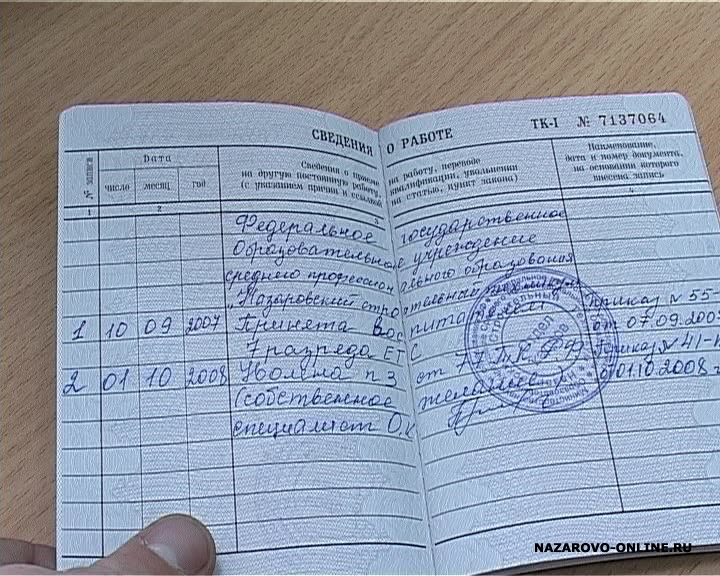 СВЕДЕНИЯ О РАБОТЕ
ТК-I № 7137064
№ записи
Дата
число месяц год
Сведения о приеме на работу, переводе
на другую постоянную работу, квалификации, увольнении
(с указанием причин и ссылкой на статью, пункт закона)
Наименование,
дата и номер документа,
на основании которого
внесена запись
1 2 3 4
Федеральное государственное
образовательное учреждение
среднего профессионального образования
„Назаровский строительный техникум
1 10 09 2007 Принята воспитателем приказ № 55-
7 разряда ЕТС от 07.09.2007
2 01 10 2008 Уволена п 3 ст 77 ТК РФ Приказ № 41-
(собственное желание) 01.10.2008 г
специалист О.К.
NAZAROVO-ONLINE.RU